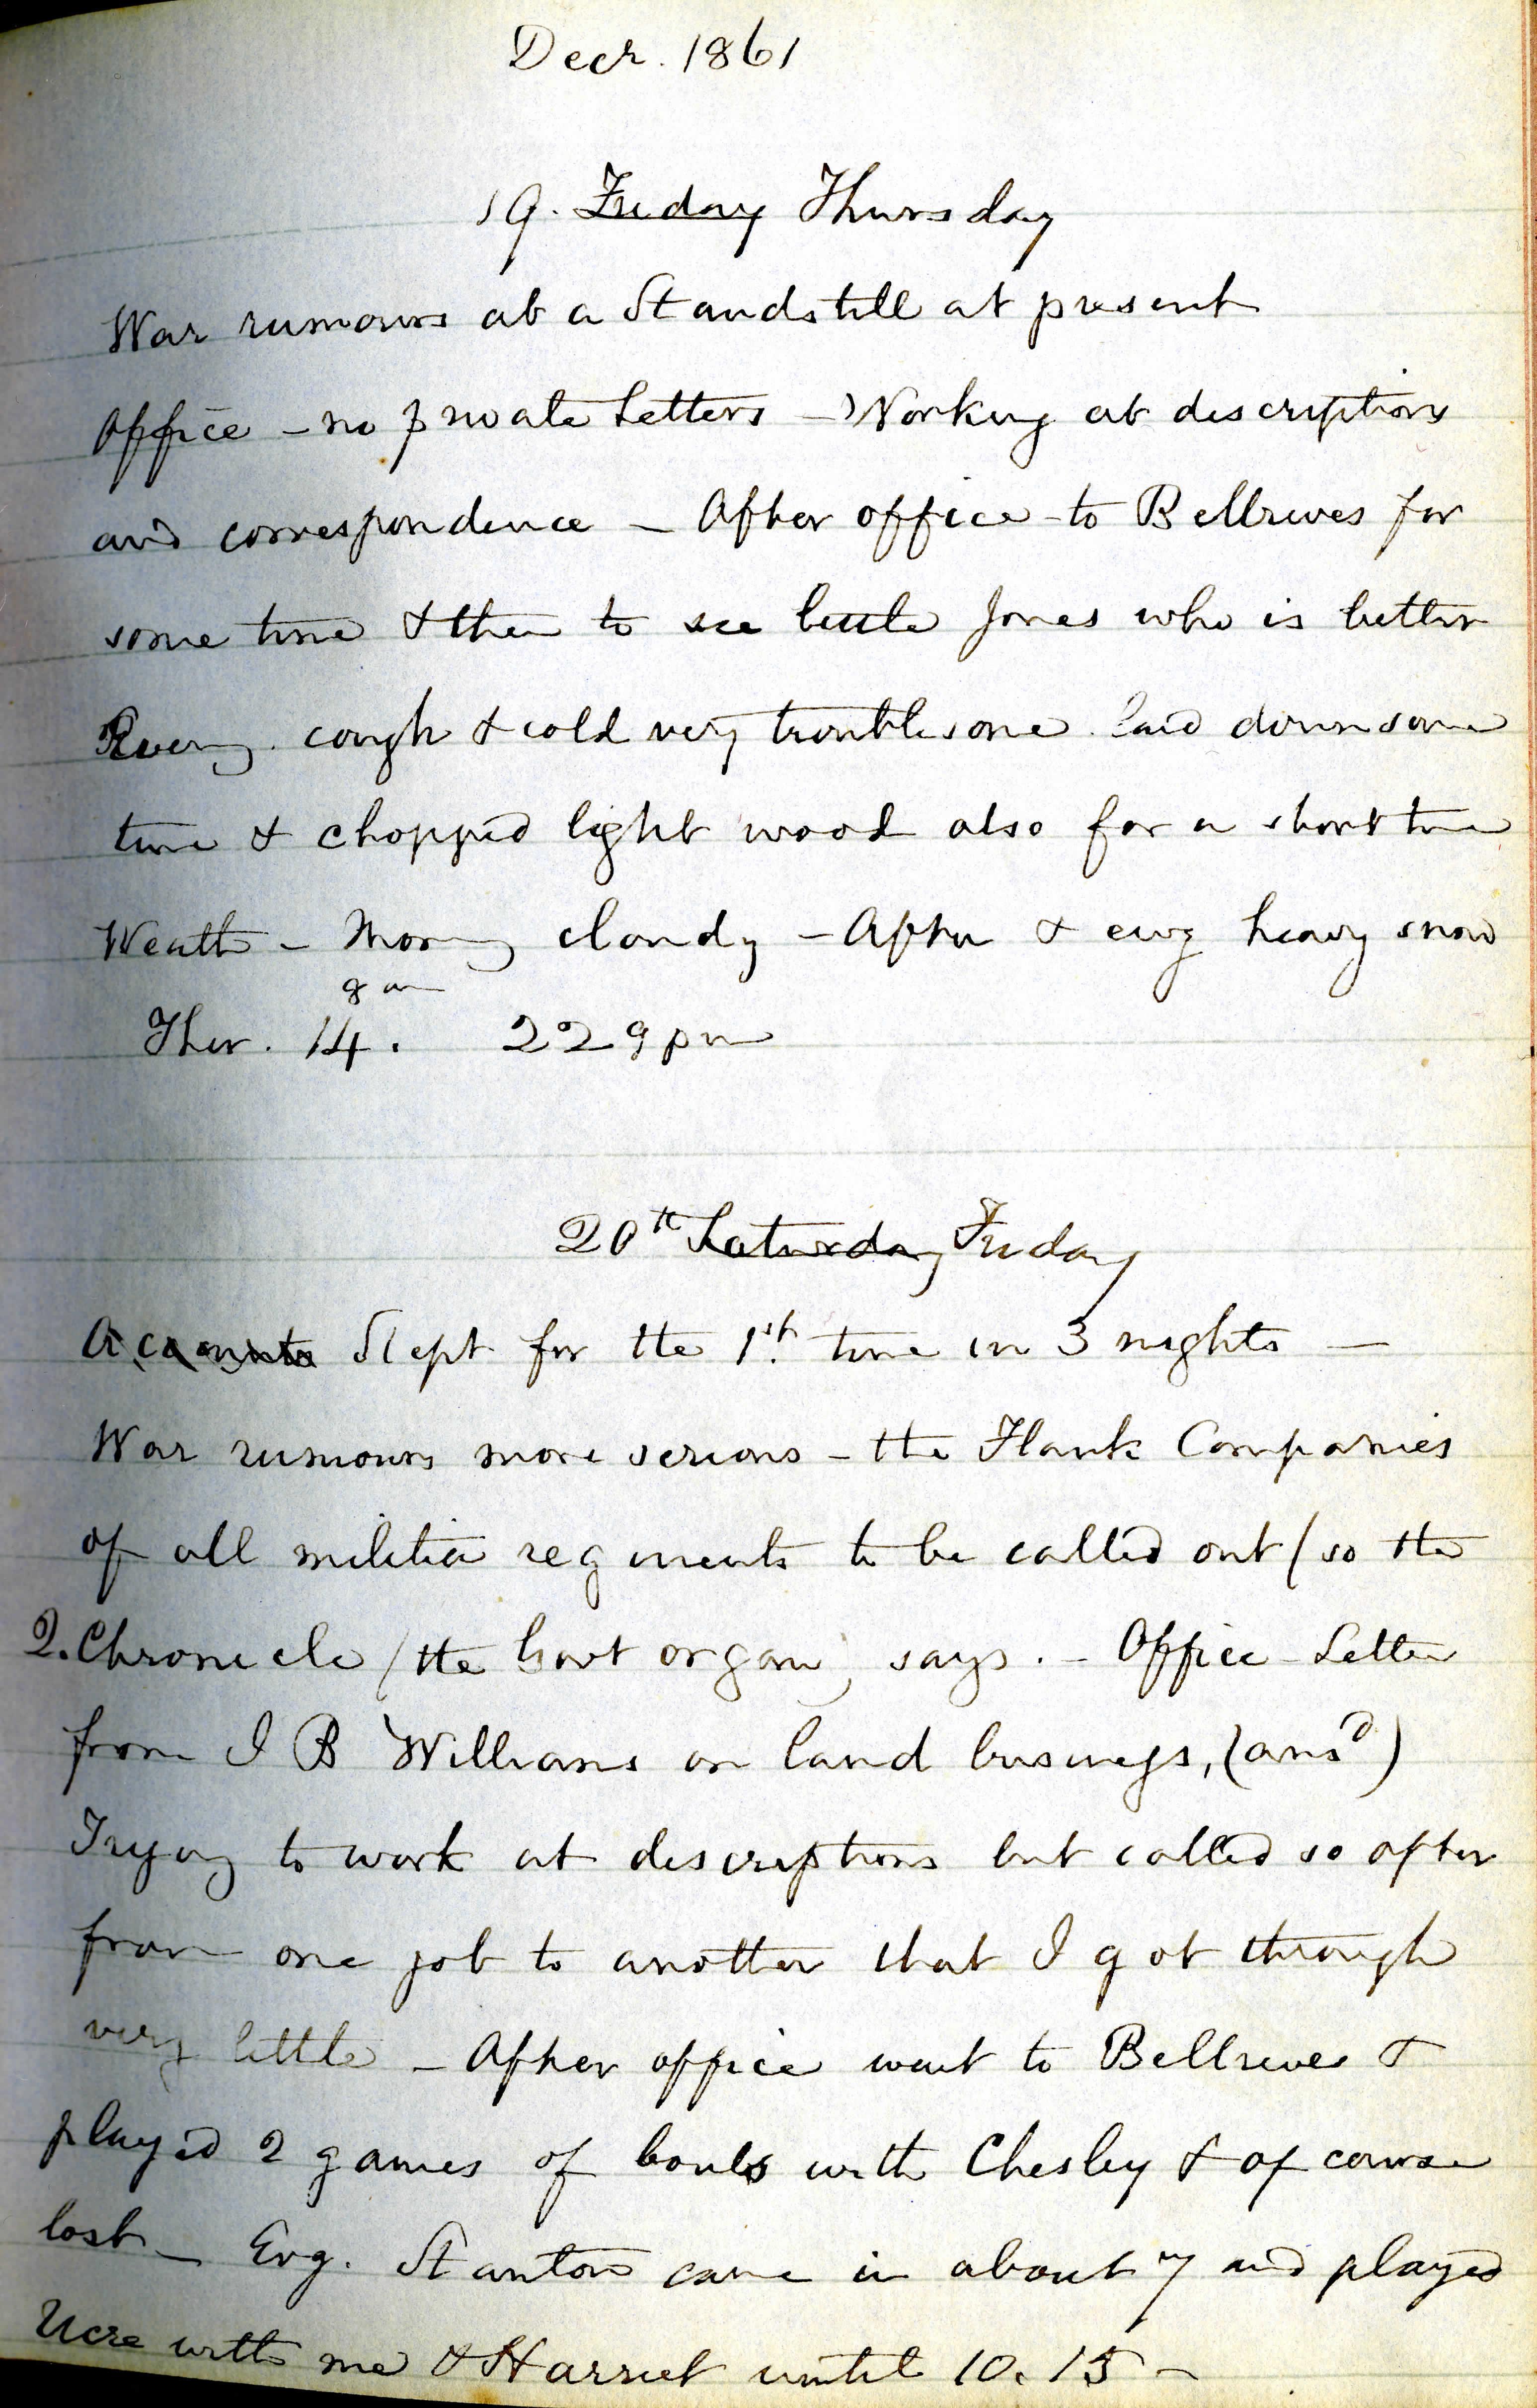 Decr. 1861
19. Friday Thursday
War rumours at a Standstill at present
Office - no private Letters - Working at descriptions
and correspondence - After office to Bellrives for
some time & then to see little Jones who is better
Eveng. cough & cold very troublesome. laid down some
time & chopped light wood also for a short time
Weath - Morng cloudy - After & evg heavy snow
8 am
Ther. 14. 22 9 pm
20th Saturday Friday
Accounts Slept for the 1st. time in 3 nights -
War rumours more serious - the Flank Companies
of all militia regiments to be called out (so the
Q. Chronicle (the Govt organ) says. - Office - Letter
from J B Williams on land business, (ansd)
Trying to work at descriptions but called so often
from one job to another that I got through
very little - After office went to Bellrives &
played 2 games of bowls with Chesley & of course
lost - Evg. Stanton came in about 7 and played
Ucre with me & Harriet until 10.15 -